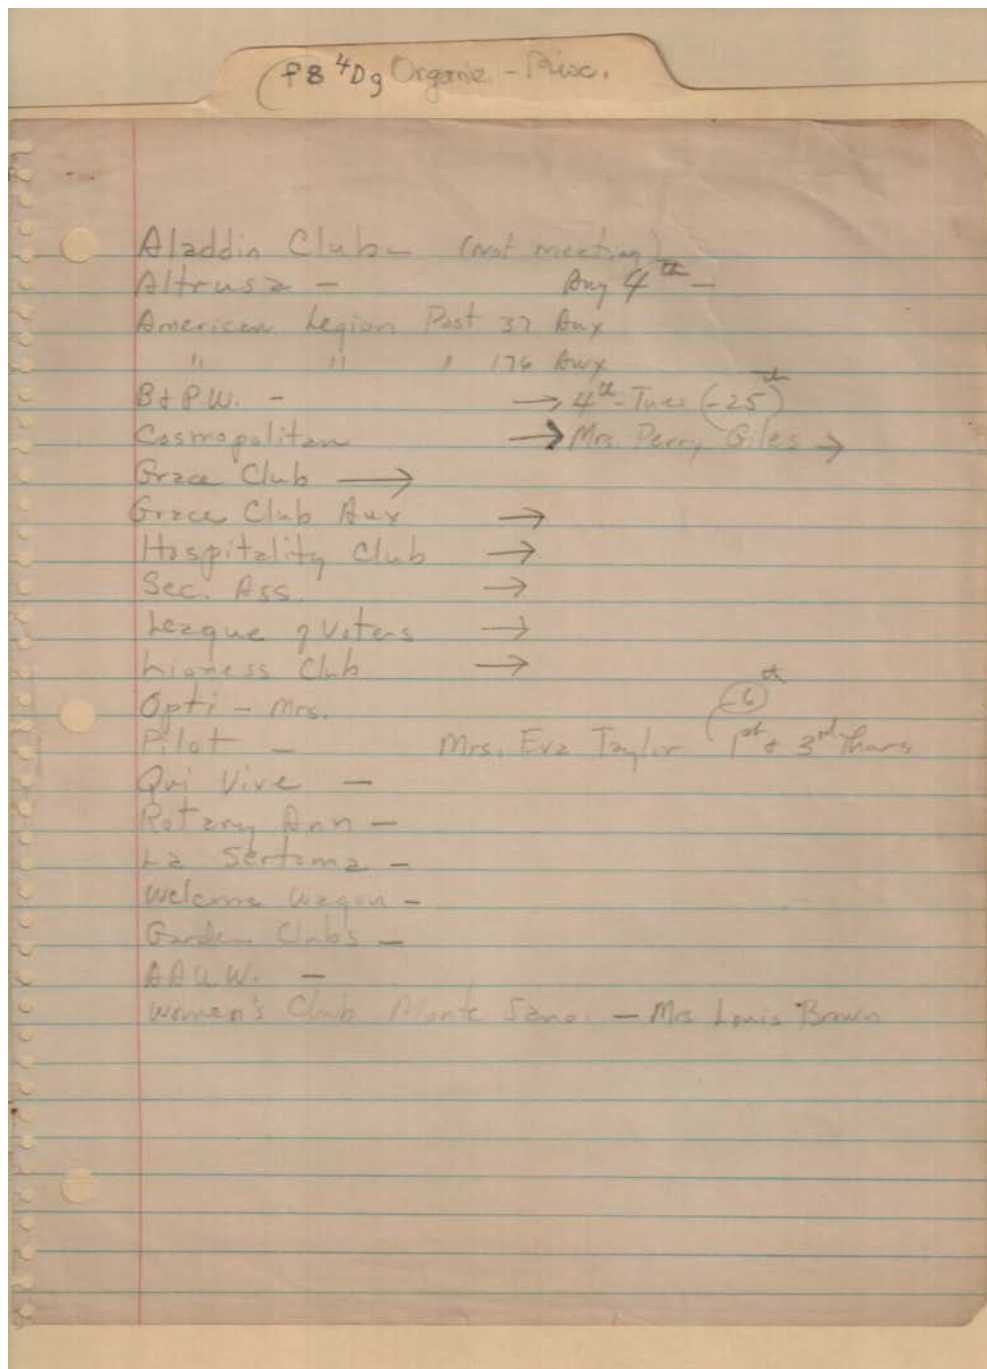 F8 4Dg Organiz. - Misc.
Aladdin Club - (not meeting)
Altrusa - Aug 4th -
American Legion Post 37 Aux
" " " 176 Aux
B & P.W. - → 4th - Tues (-25th)
Cosmopolitan → Mrs. Perry Giles →
Grace Club →
Grace Club Aux →
Hospitality Club →
Sec. Ass. →
League of Voters →
Lioness Club →
Opti - Mrs.
Pilot - Mrs. Eva Taylor 1st & 3rd Thurs (-6th)
Qui Vive -
Rotary Ann -
La Sertoma -
Welcome Wagon -
Garden Clubs -
AAUW. -
Women's Club Monte Sano. - Mrs Louis Brown